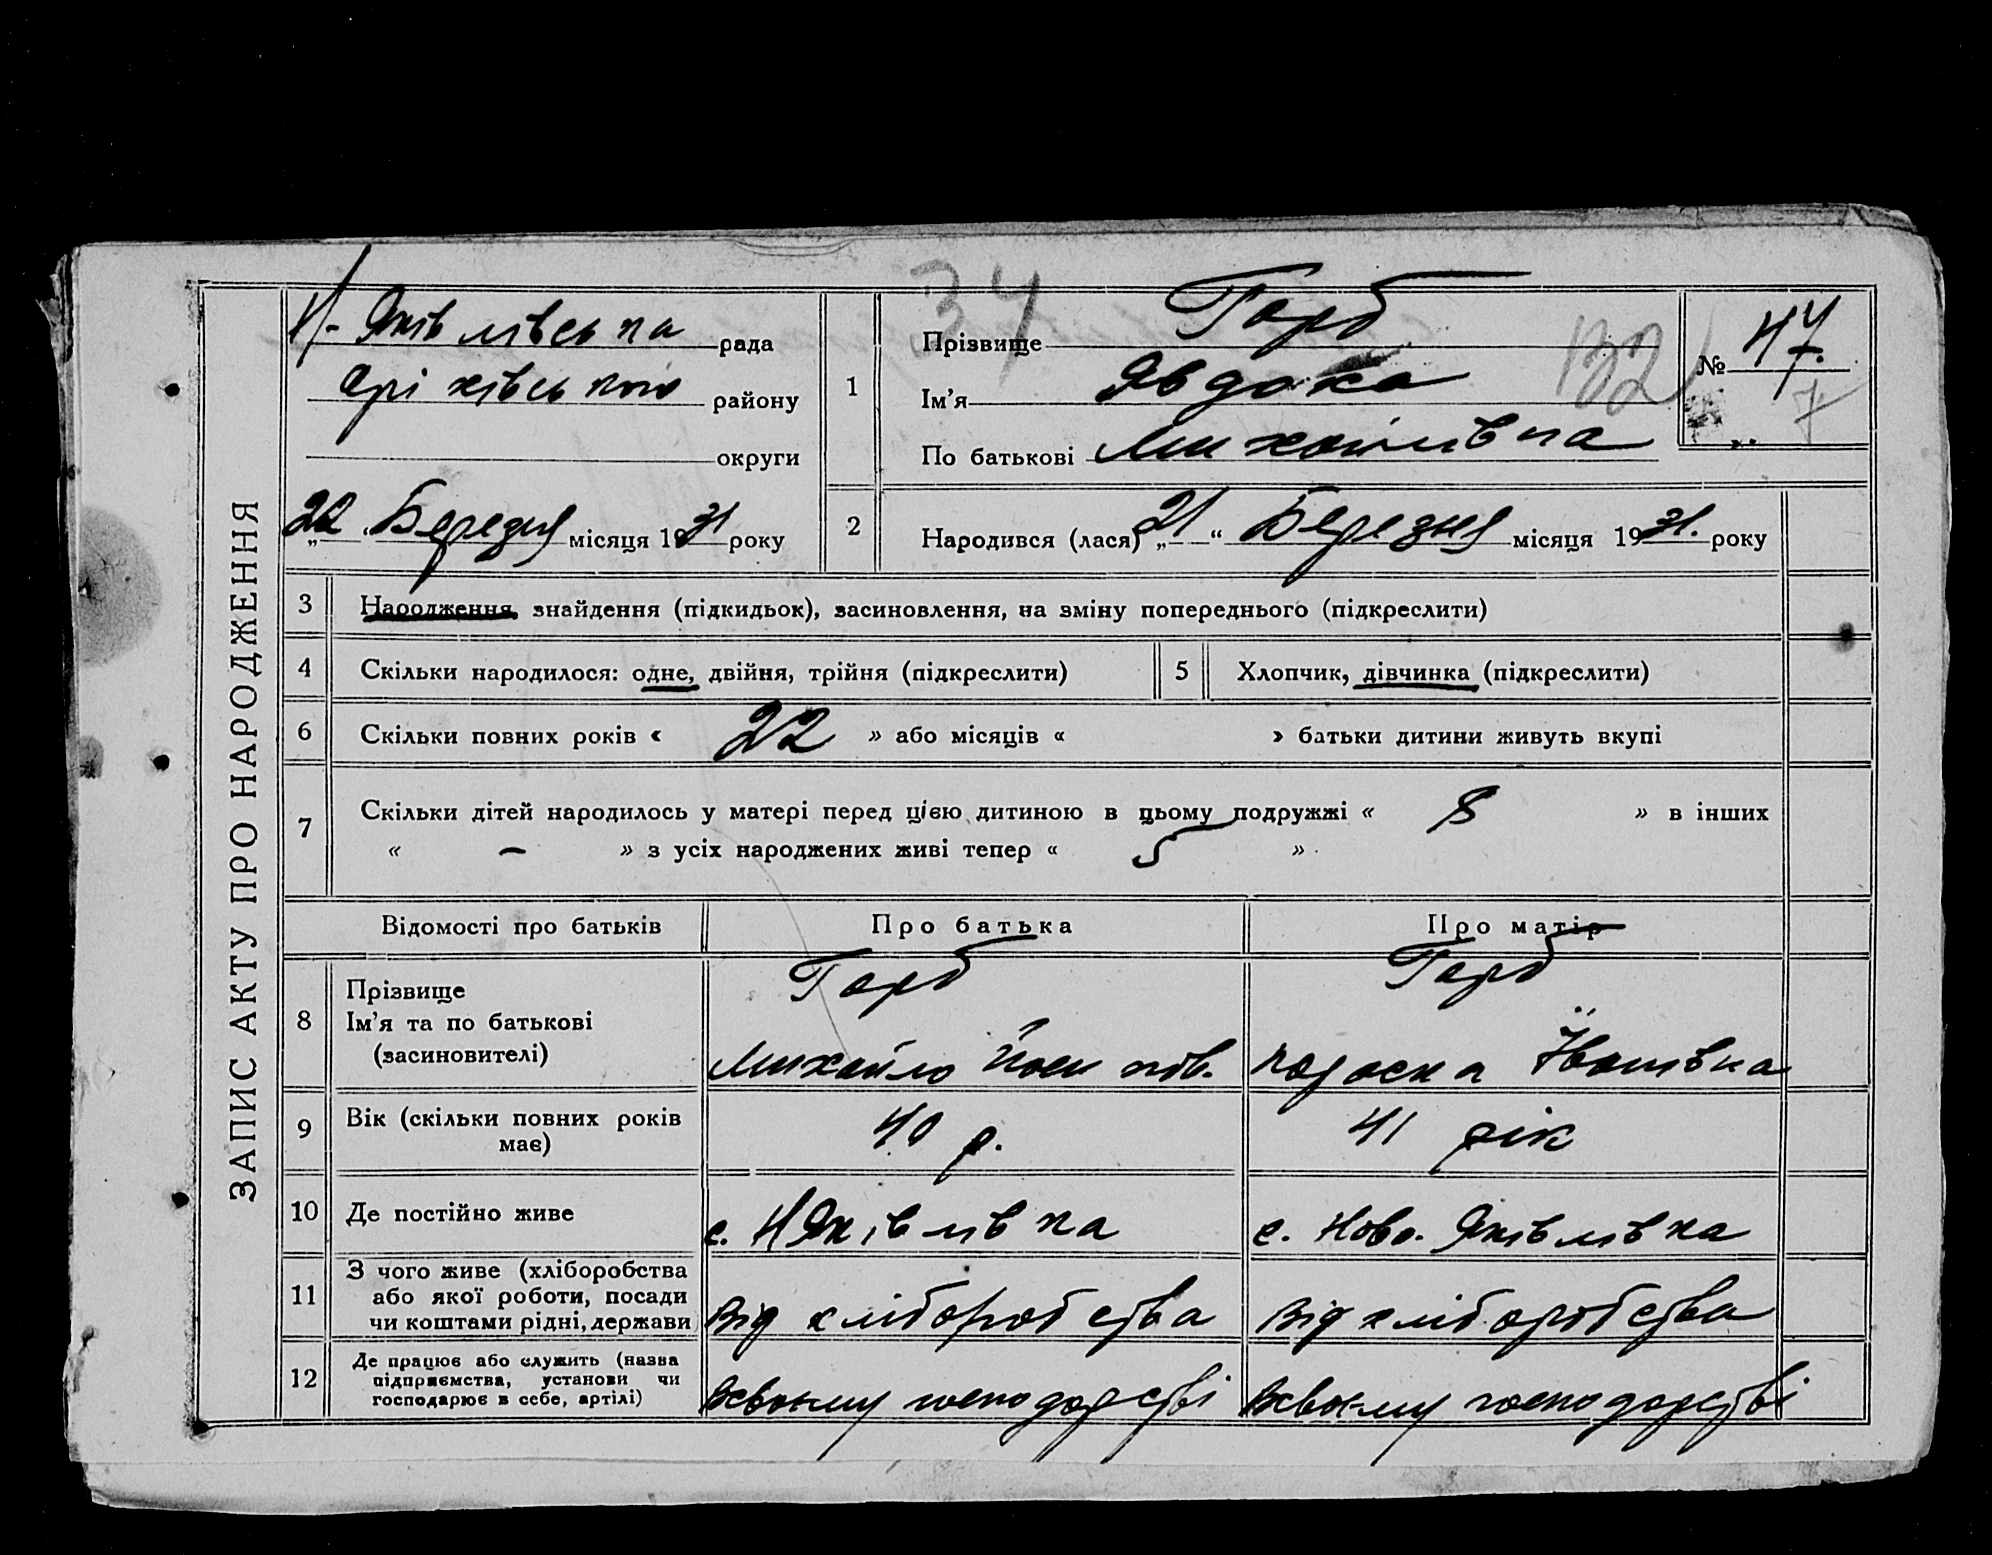 34
ЗАПИС АКТУ ПРО НАРОДЖЕННЯ
Н-Яківлівська рада
Оріхівського району
округи
„22“ Березня місяця 1931 року
1
Прізвище Горб
Ім'я Явдоха
По батькові Михайлівна
132
№ 47.
7
2
Народився (лася) „21“ Березня місяця 1931. року
3 Народження, знайдення (підкидьок), засиновлення, на зміну попереднього (підкреслити)
4 Скільки народилося: одне, двійня, трійня (підкреслити)
5 Хлопчик, дівчинка (підкреслити)
6 Скільки повних років « 22 » або місяців « » батьки дитини живуть вкупі
7 Скільки дітей народилось у матері перед цією дитиною в цьому подружжі « 8 » в інших
« – » з усіх народжених живі тепер « 5 ».
Відомості про батьків Про батька Про матір
8 Прізвище
Ім'я та по батькові
(засиновителі)
Горб
Михайло Йосипов.
Горб
Іванівна
9 Вік (скільки повних років
має)
40 р.
41 рік
10 Де постійно живе
с. НЯківлівка
с. Ново. Яківлівка
11 З чого живе (хліборобства
або якої роботи, посади
чи коштами рідні, держави
Від хліборобства
Від хліборобства
12 Де працює або служить (назва
підприємства, установи чи
господарює в себе, артілі)
Всвоєму господарстві
Всвоєму господарстві